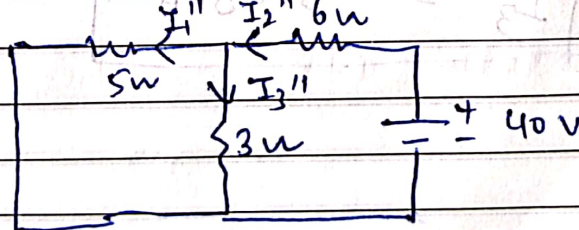 I₁" I₂" 6Ω
5Ω I₃"
3Ω + - 40 V